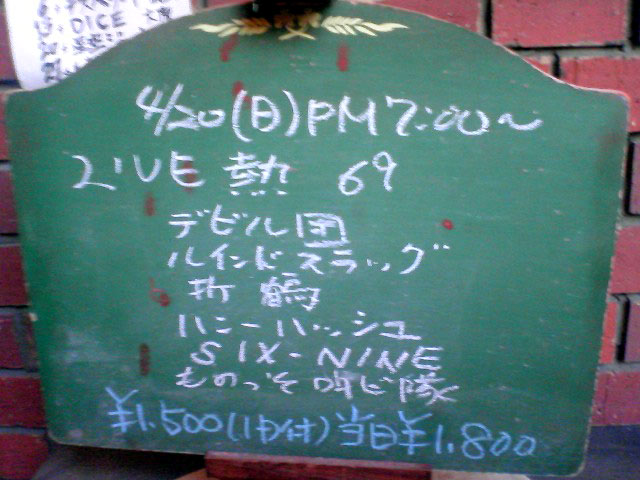 DICE
4/20(日)PM7:00~
LIVE 熱 69
デビル団
ルインドスラッグ
折鶴
ハニーハッシュ
SIX-NINE
ものっそ叫ビ隊
¥1.500(1D付)当日¥1.800